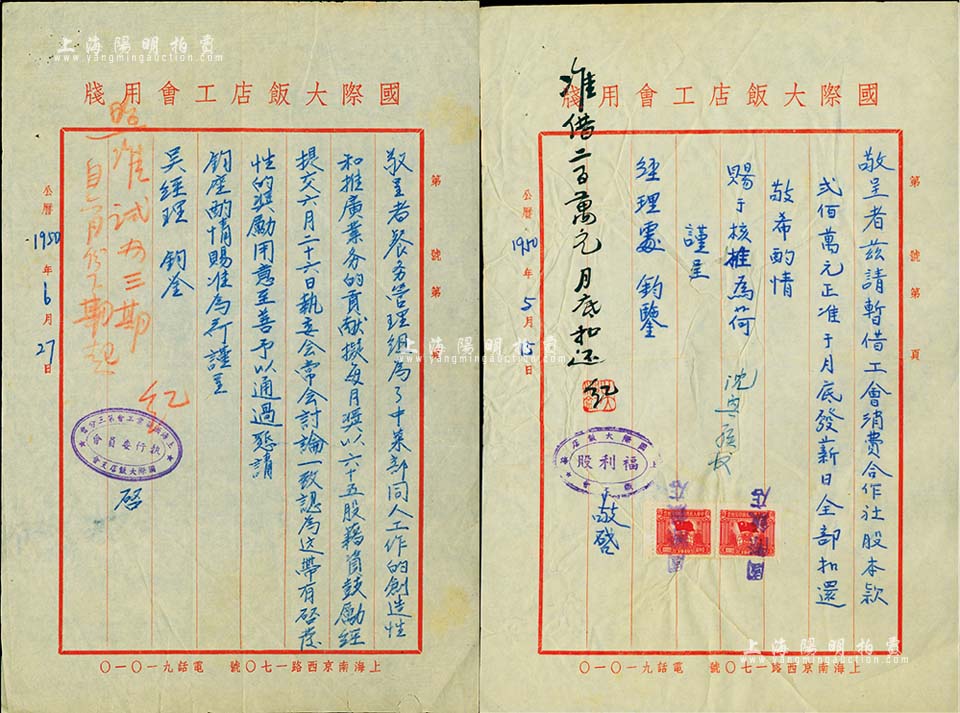 國際大飯店工會用牋
敬呈者茲請暫借工會消費合作社股本款
弍佰萬元正准于月底發薪日全部扣還
敬希酌情
賜予核准為荷
謹呈
經理處 鈞鑒
敬啓
准借二百萬元月底扣还
第 號第 頁
公曆1950年5月 日
國際大飯店
福利股
上海南京西路一七〇號 電話九一〇一〇
國際大飯店工會用牋
敬呈者餐务管理組為了中菜部同人工作的創造性
和推廣業务的貢献擬每月獎以六十五股藉資鼓勵經
提交六月二十六日執委会常会討論一致認為这帶有啓發
性的獎勵用意至善予以通過懇請
鈞座酌情賜准為荷謹呈
吴經理 鈞鉴
啓
照准試办三期
第 號第 頁
公曆1950年6月27日
執行委員會
國際大飯店支會
上海南京西路一七〇號 電話九一〇一〇
上海陽明拍賣
www.yangmingauction.com
上海陽明拍賣
www.yangmingauction.com
上海陽明拍賣
www.yangmingauction.com
上海陽明拍賣
www.yangmingauction.com